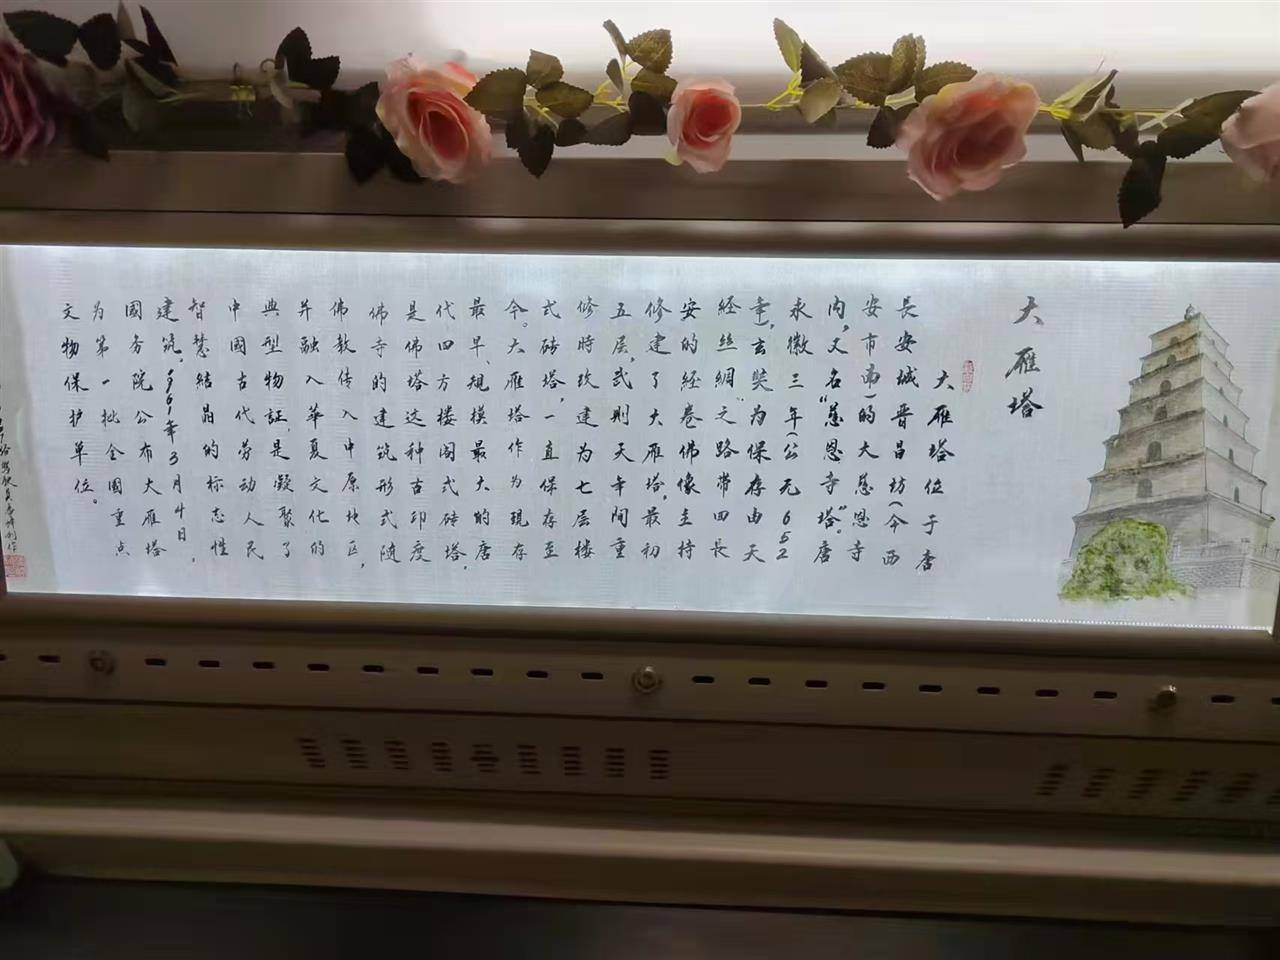 大雁塔
大雁塔位于唐
長安城晋昌坊(今西
安市南)的大慈恩寺
内,又名"慈恩寺塔"。唐
永徽三年(公元652
年),玄奘为保存由天
经丝綢"之路带回長
安的経卷佛像主持
修建了大雁塔,最初
五层,武则天年间重
修時改建为七层楼
式砖塔,一直保存至
今。大雁塔作为現存
最早、規模最大的唐
代四方楼阁式砖塔,
是佛塔这种古印度
佛寺的建筑形式随
佛教传入中原地区,
并融入華夏文化的
典型物証,是凝聚了
中國古代劳动人民
智慧結晶的标志性
建筑。1961年3月4日,
國务院公布大雁塔
为第一批全國重点
文物保护单位。